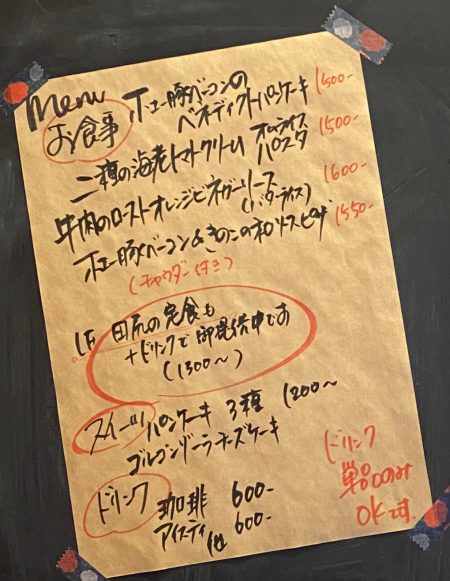 Menu
お食事
ホエー豚ベーコンの
ベネディクトパンケーキ 1500-
二種の海老トマトクリーム オムライス 1500-
パスタ
牛肉のローストオレンジビネガーソース 1600-
(バターライス)
ホエー豚ベーコン&きのこの和リスピザ 1550-
(チャウダー付き)
1F 田尻の定食も
+ドリンクで御提供中です
(1300〜)
スイーツ パンケーキ 3種 1200〜
ゴルゴンゾーラチーズケーキ
ドリンク 珈琲 600-
アイスティ 他 600-
ドリンク
単品のみ
OKです.